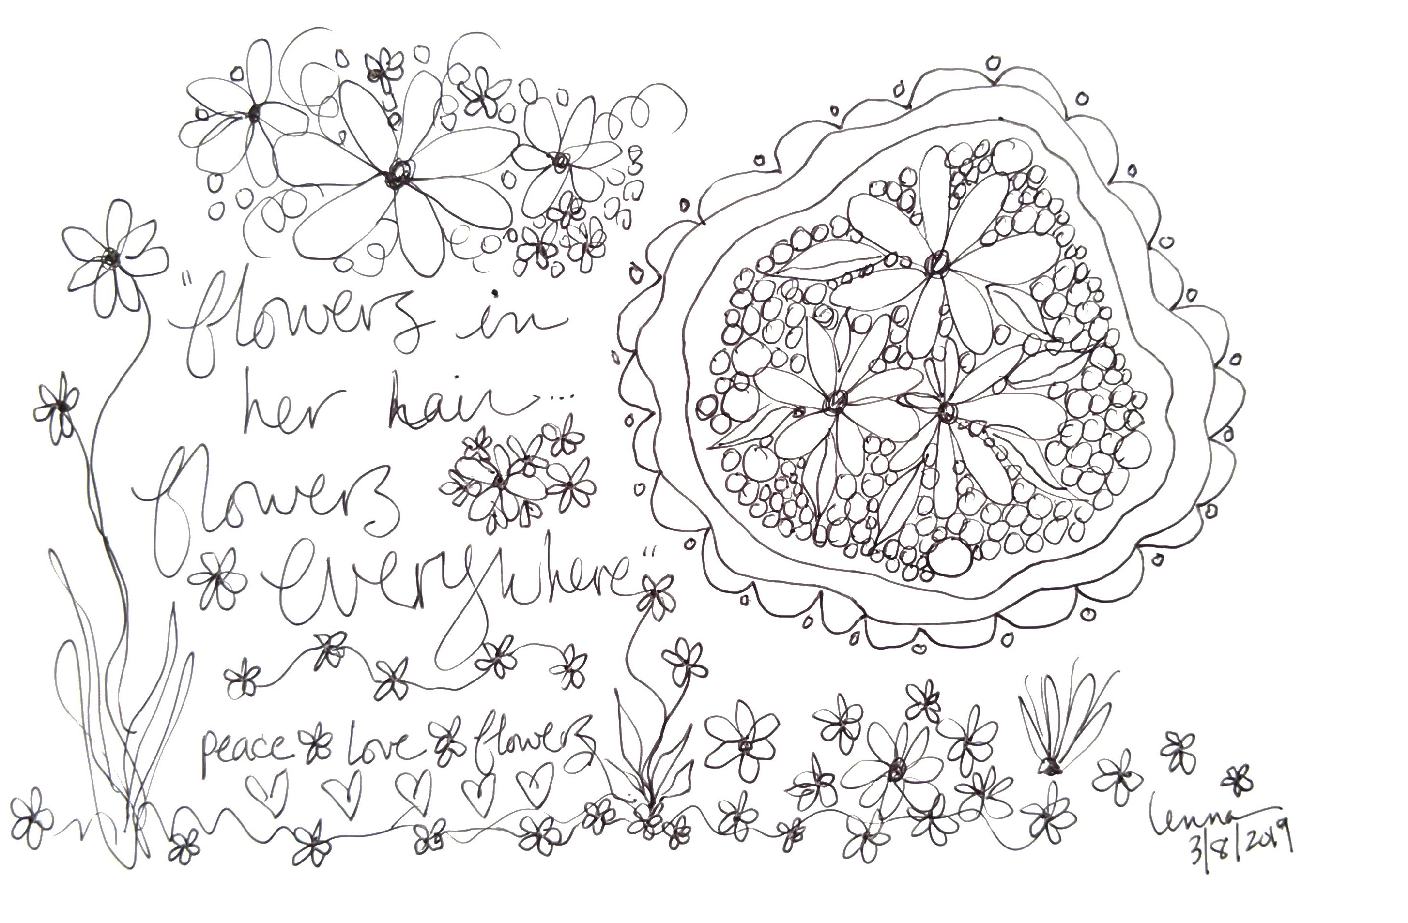 "flowers in
her hair...
flowers
everywhere"
peace love flowers
Lenna
3/8/2019